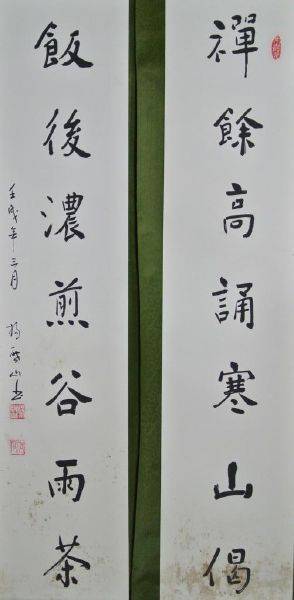 禪餘高誦寒山偈
飯後濃煎谷雨茶
壬戌年三月 楊雪山書